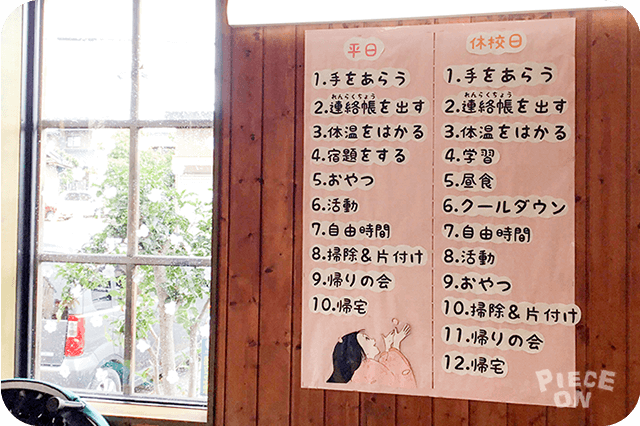 平日
1.手をあらう
れんらくちょう
2.連絡帳を出す
3.体温をはかる
4.宿題をする
5.おやつ
6.活動
7.自由時間
8.掃除&片付け
9.帰りの会
10.帰宅
休校日
1.手をあらう
れんらくちょう
2.連絡帳を出す
3.体温をはかる
4.学習
5.昼食
6.クールダウン
7.自由時間
8.活動
9.おやつ
10.掃除&片付け
11.帰りの会
12.帰宅
PIECE
ON